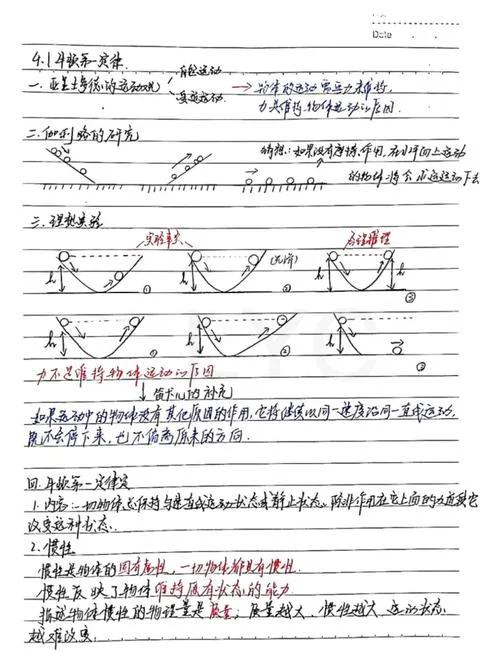 Date
4.1 牛顿第一定律
一、亚里士多德的运动观
自然运动
受迫运动
→ 物体的运动需要力来维持,
力是维持物体运动的原因.
二、伽利略的研究
猜想:如果没有摩擦作用,在水平面上运动
的物体将会永远运动下去
三、理想实验
实验事实
(光滑)
合理推理
h
h
h
①
②
③
h
h
④
力不是维持物体运动的原因
↓ 笛卡儿的补充
如果运动中的物体没有其他原因的作用,它将继续以同一速度沿同一直线运动,
既不会停下来,也不偏离原来的方向.
四、牛顿第一定律
1.内容:一切物体总保持匀速直线运动状态或静止状态,除非作用在它上面的力迫使它
改变这种状态.
2.惯性
惯性是物体的固有属性,一切物体都具有惯性.
惯性反映了物体维持原有状态的能力
描述物体惯性的物理量是质量;质量越大,惯性越大,运动状态
越难改变.